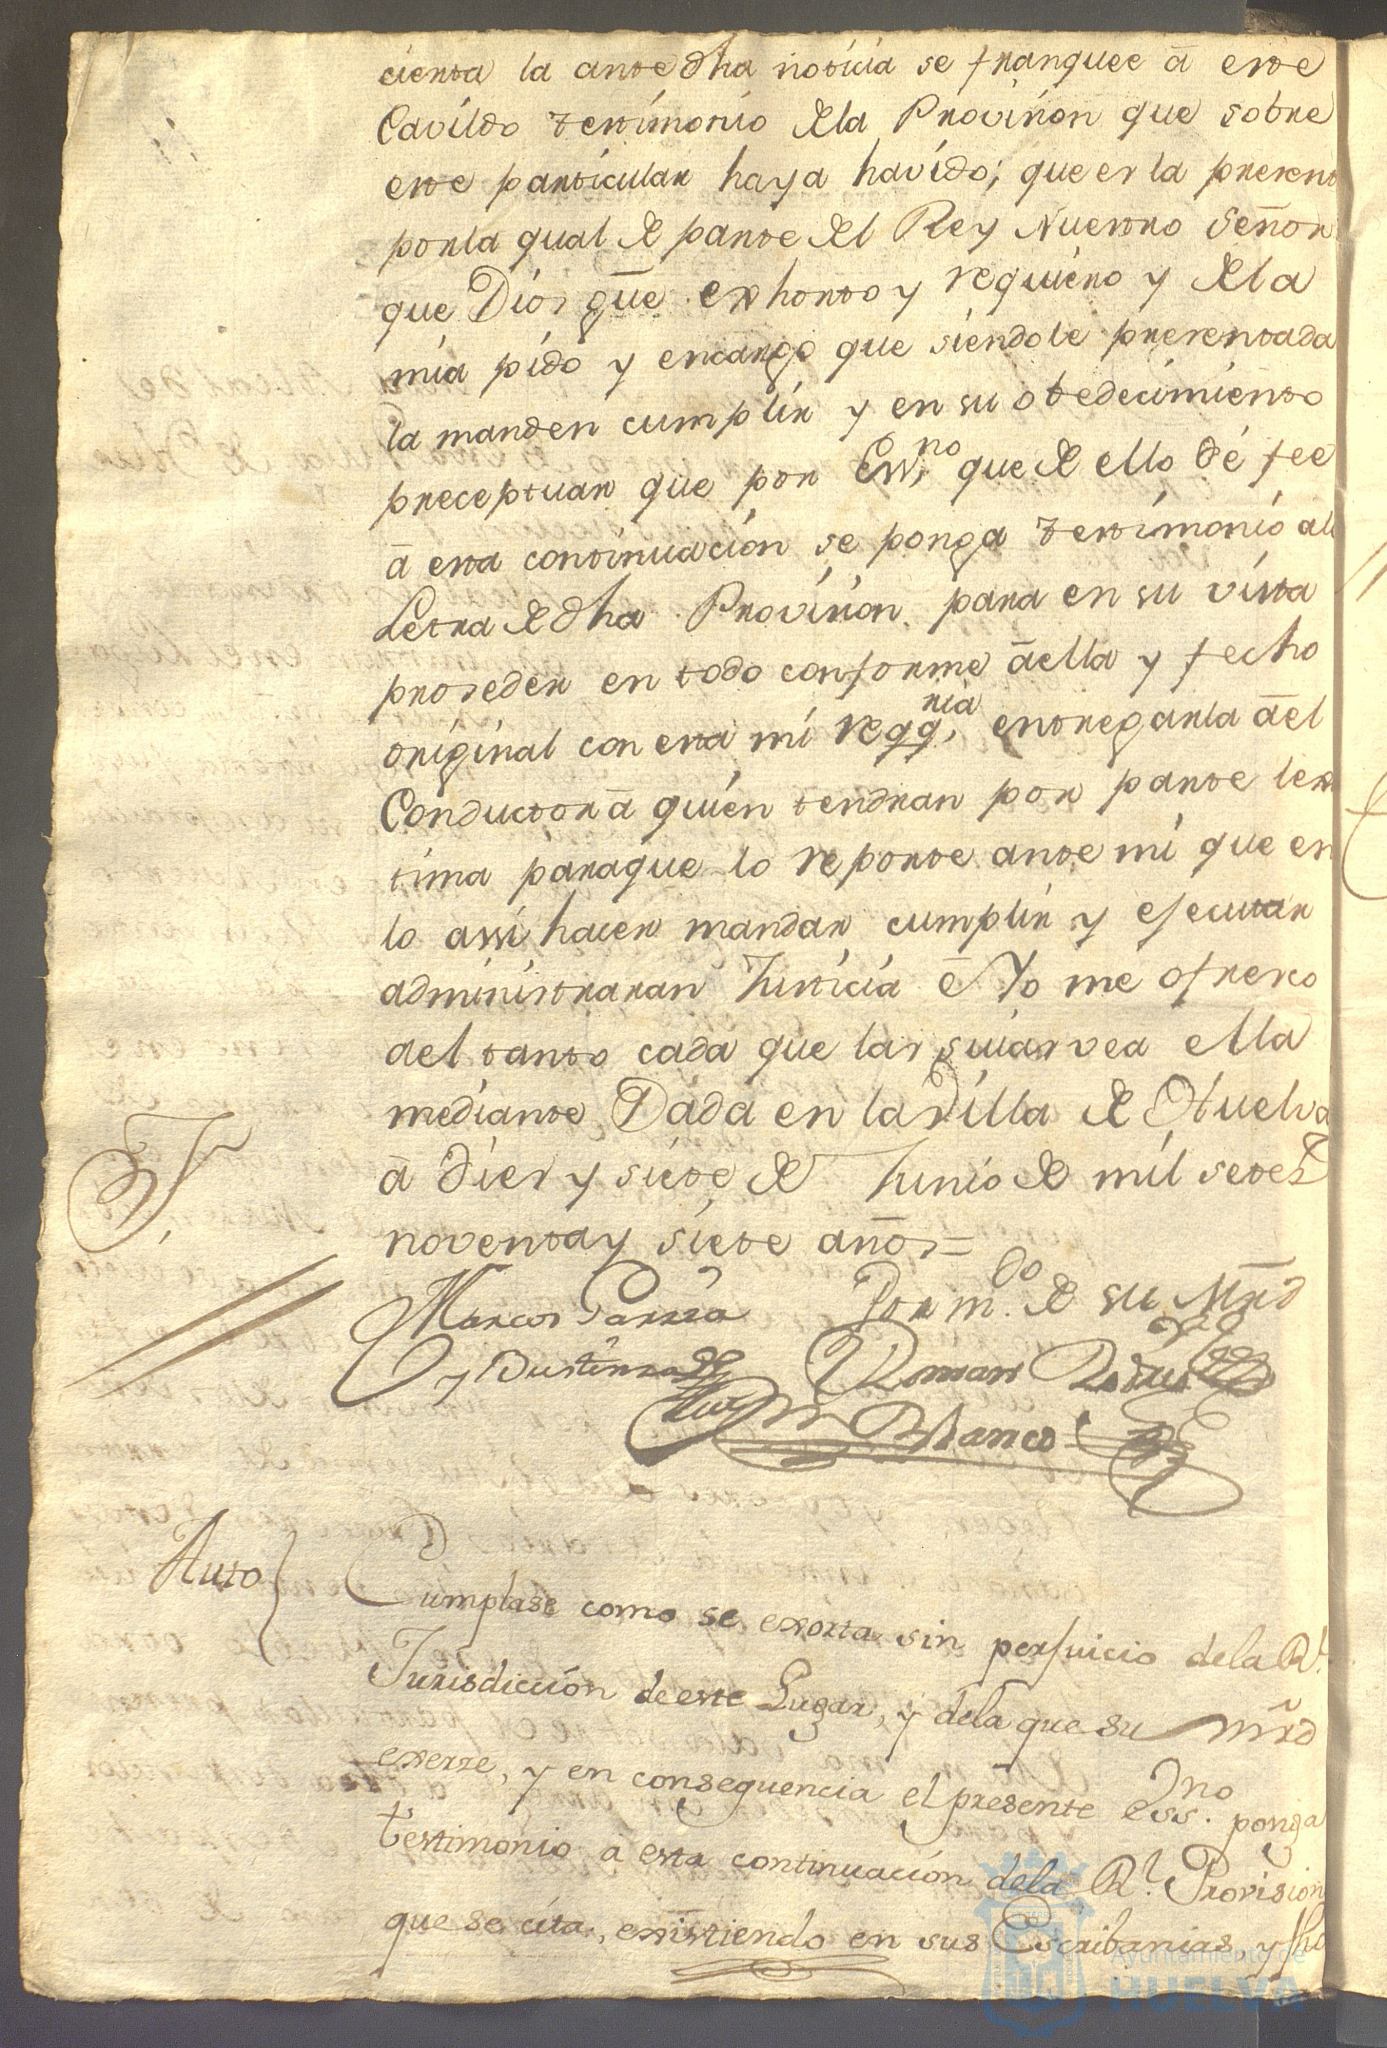 cierta la antedha noticia se franquee â este
Cavildo testimonio de la Provision que sobre
este particular haya havido; que es la present
por la qual de parte del Rey Nuestro Señor
que Dios gūe exhorto y requiero y de la
mia pido y encargo que siendole presentada
la manden cumplir y en su obedecimiento
preceptuar que por Essno que de ello dé fee
â esta continuacion se ponga testimonio ala
Letra de dha Provision para en su vista
proseder en todo conforme âella y fecho
original con esta mi reqqria, entregarla âel
Conductor â quien tendran por parte lexi
tima paraque lo reporte ante mi que en
lo assi hacer mandar cumplir y ejecutar
administraran Justicia ê Yo me ofresco
del tanto cada que las suias vea ella
mediante Dada en la Villa de Huelva
â Dies y siete de Junio de mil setes
noventa y siete años =
Marcos Garzia Por mdo de su Mrd
y Bustinza Roman Rodrig
Blanco
Auto} Cumplase como se exorta sin perjuicio dela Rl.
Jurisdiccion de este Lugar, y dela que su mrd
exerze, y en consequencia el presente Essno ponga
testimonio a esta continuacion dela Rl. Provision
que se cita, existiendo en sus Escribanias, y
Ayuntamiento de
HUELVA